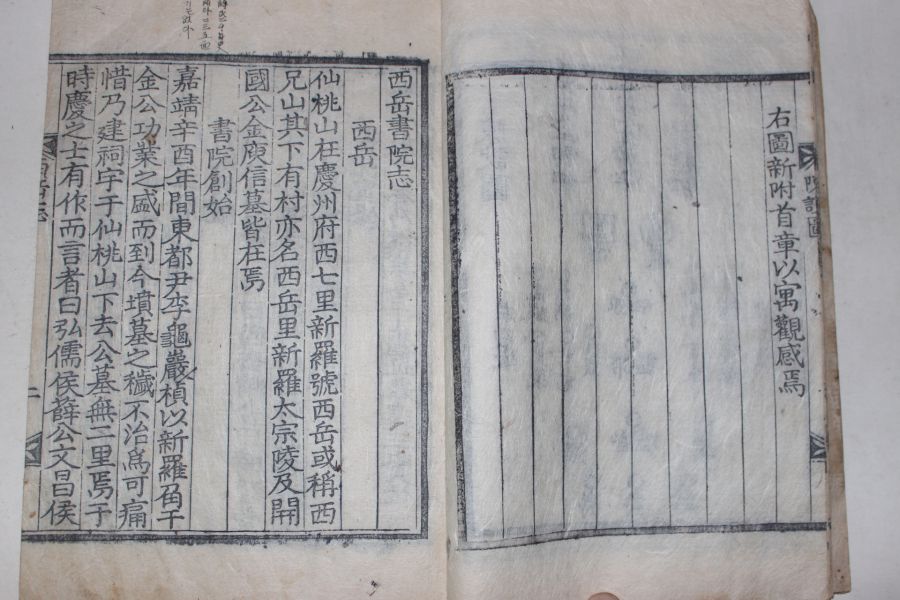 右圖新附首章以寓觀感焉
西岳書院志
西岳
仙桃山在慶州府西七里新羅號西岳或稱西
兄山其下有村亦名西岳里新羅太宗陵及開
國公金庾信墓皆在焉
書院創始
嘉靖辛酉年間東都尹李龜巖楨以新羅角干
金公功業之盛而到今墳墓之穢不治爲可痛
惜乃建祠宇于仙桃山下去公墓無二里焉于
時慶之士有作而言者曰弘儒侯薛公文昌侯